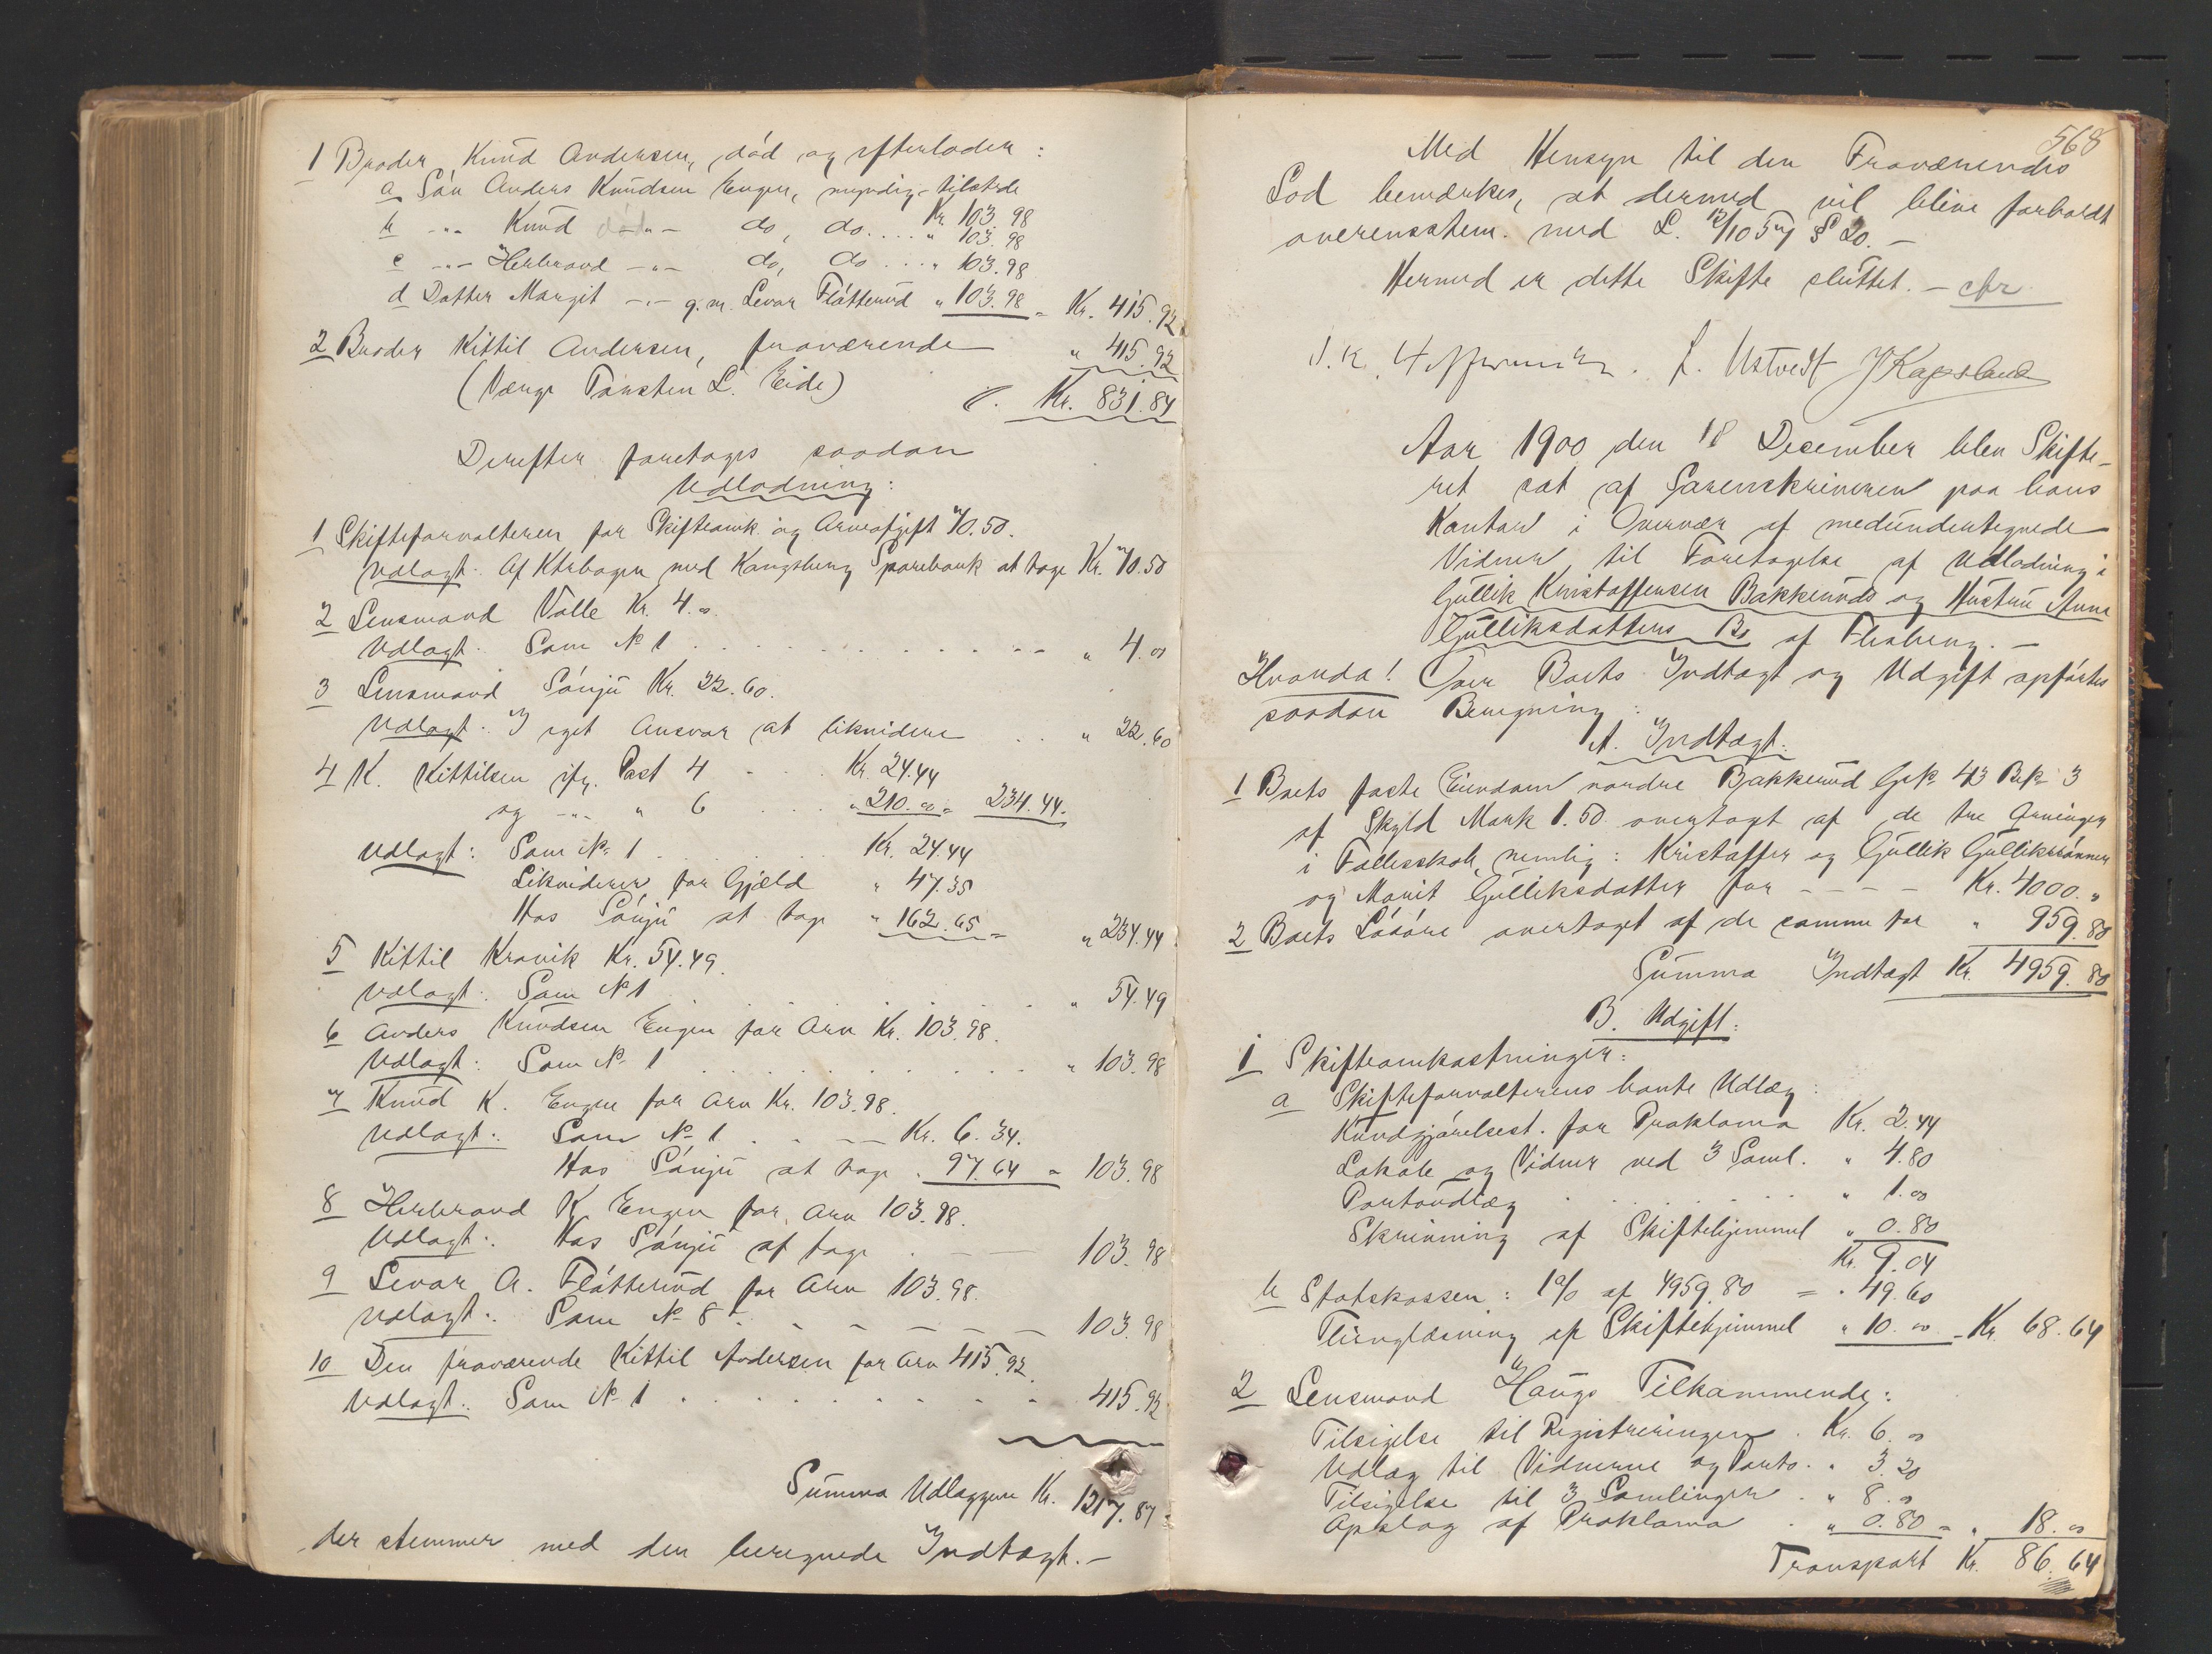 1 Broder Knud Andersen, død og efterlader:
a Søn Anders Knudsen Engen, myndig - tilstede
Kr. 103.98
b -"- Knud -"- do, do.... " 103.98
c -"- Herbrand -"- do, do... " 103.98
d Datter Margit -"- g.m. Levor Fløtterud " 103.98 = Kr. 415.92
2 Broder Kittil Andersen, fraværende " 415.92
(Værge Torsten L. Eide) Kr. 831.84
Derefter foretoges saadan
Udlodning:
1 Skifteforvalteren for Skifteomk. og Arveafgift 70.50.
Udlagt: Af Ktrbogen med Kongsberg Sparebank at tage Kr. 70.50
2 Lensmand Valle Kr. 4.00
Udlagt. Som No 1 . . . . . . . " 4.00
3 Lensmand Sønju Kr. 22.60.
Udlagt: I eget Ansvar at likvidere . . " 22.60
4 K. Kittilsen ifg. Post 4 . . . Kr. 24.44
og -"- " 6 . . . " 210.00 = 234.44.
Udlagt: Som No 1 . . . . Kr. 24.44
Likviderer for Gjæld " 47.35
Hos Sønju at tage " 162.65 = " 234.44
5 Kittil Kravik Kr. 54.49.
Udlagt: Som No 1 . . . . . . " 54.49
6 Anders Knudsen Engen for Arv Kr. 103.98.
Udlagt: Som No 1 . . . . . . " 103.98
7 Knud K. Engen for Arv Kr. 103.98.
Udlagt: Som No 1 . . - - Kr. 6.34.
Hos Sønju at tage " 97.64 = 103.98
8 Herbrand K. Engen for Arv 103.98.
Udlagt: Hos Sønju at tage . - - 103.98
9 Levor A. Fløtterud for Arv 103.98.
Udlagt: Som No 8 . - - - - - 103.98
10 Den fraværende Kittil Andersen for Arv 415.92.
Udlagt: Som No 1 . . . . . . 415.92
Summa Udlæggene Kr. 1217.87 -
der stemmer med den beregnede Indtægt. -
568
Med Hensyn til den Fraværendes
Lod bemærkes, at dermed vil blive forholdt
overensstem. med L. 12/10 57 § 20. -
Hermed er dette Skifte sluttet. -
L. Ustvedt J Kapsland
Aar 1900 den 18 December blev Skifte-
ret sat af Sorenskriveren paa hans
Kontor i Overvær af medundertegnede
Vidner til Foretagelse af Udlodning i
Gullik Kristoffersen Bakkeruds og Hustru Anne
Gulliksdatters Bo af Flesberg. -
Hvorda! Over Boets Indtægt og Udgift opførtes
saadan Beregning:
A. Indtægt:
1 Boets faste Eiendom nordre Bakkerud Gr 43 Br 3
af Skyld Mark 1.50 overtagt af de tre Arvinger
i Fællesskab, nemlig: Kristoffer og Gullik Gullikssønner
og Marit Gulliksdatter for - - - - Kr. 4000. "
2 Boets Løsøre overtaget af de samme for " 959.80
Summa Indtægt Kr. 4959.80
B. Udgift:
1 Skifteomkostninger:
a Skifteforvalterens havte Udlæg:
Kundgjørelsest. for Proklama Kr. 2.44
Lokale og Vidner ved 3 Saml. " 4.80
Portoudlæg . . . . . . . " 1.00
Skrivning af Skiftehjemmel " 0.80
Kr. 9.04
b Statskassen: 1% af 4959.80 = " 49.60
Thinglæsning af Skiftehjemmel " 10.00 = Kr. 68.64
2 Lensmand Haugs Tilkommende:
Tilsigelse til Registreringen . Kr. 6.00
Udlæg til Vidnerne og Porto . " 3.20
Tilsigelse til 3 Samlinger . " 8.00
Opslag af Proklama . " 0.80 = " 18.00
Transport Kr. 86.64